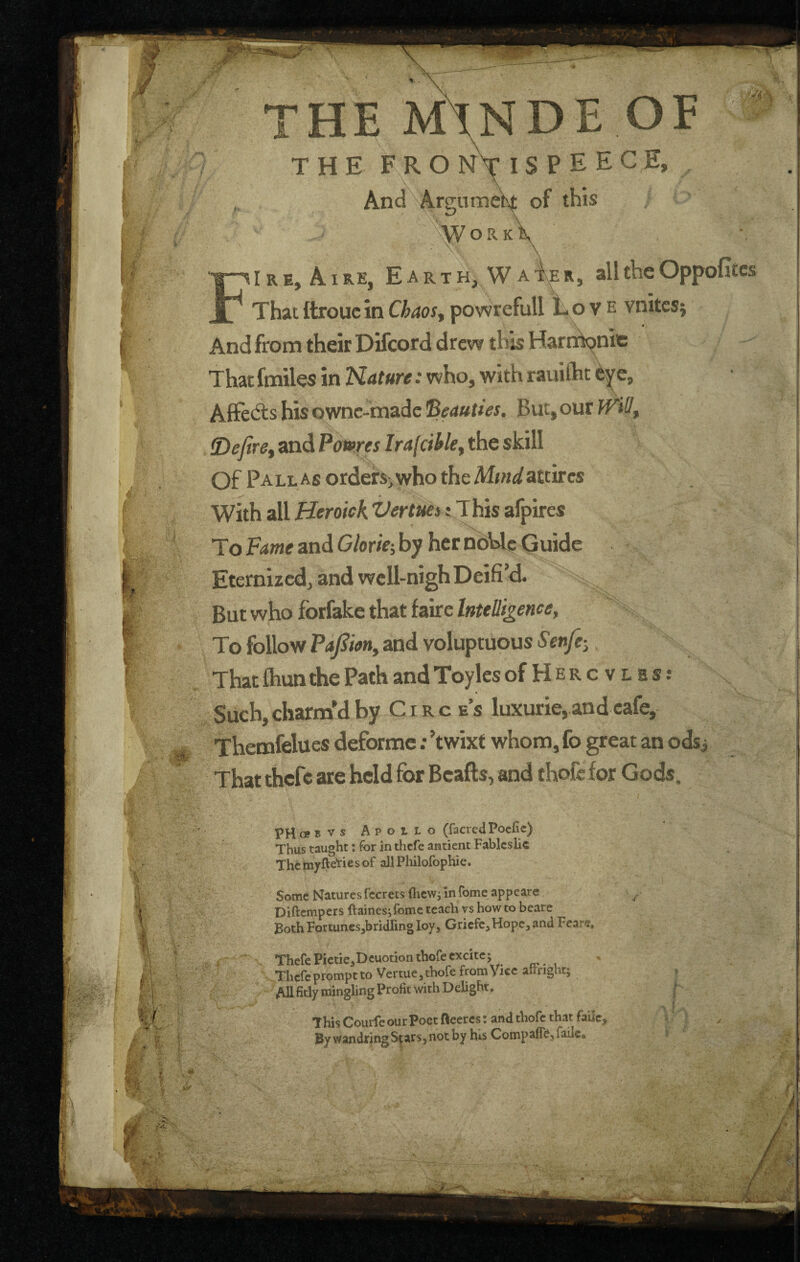 THE MINDE OF
THE FRONTISPEECE,
And Argument of this
WORK.
FIRE, AIRE, EARTH, WATER, all the Oppoſites
That ſtroue in Chaos, powrefull LOVE vnites;
And from their Diſcord drew this Harmonie
That ſmiles in Nature: who, with rauiſht eye,
Affects his owne-made Beauties. But, our Will,
Deſire, and Powres Iraſcible, the skill
Of PALLAS orders, who the Mind attires
With all Heroick Vertues: This aſpires
To Fame and Glorie; by her noble Guide
Eternized, and well-nigh Deifi'd.
But who forſake that faire Intelligence,
To follow Paſsion, and voluptuous Senſe;
That ſhun the Path and Toyles of HERCVLES:
Such, charm'd by CIRCE's luxurie, and eaſe,
Themſelues deforme: 'twixt whom, ſo great an ods;
That theſe are held for Beaſts, and thoſe for Gods.
PHŒBVS APOLLO (ſacred Poeſie)
Thus taught: for in theſe antient Fables lie
The myſteries of all Philoſophie.
Some Natures ſecrets ſhew; in ſome appeare
Diſtempers ſtaines; ſome teach vs how to beare
Both Fortunes, bridling Ioy, Griefe, Hope, and Feare.
Theſe Pietie, Deuotion thoſe excite;
Theſe prompt to Vertue, thoſe from Vice affright;
All fitly mingling Profit with Delight.
This Courſe our Poet ſteeres: and thoſe that faile,
By wandring Stars, not by his Compaſſe, ſaile.